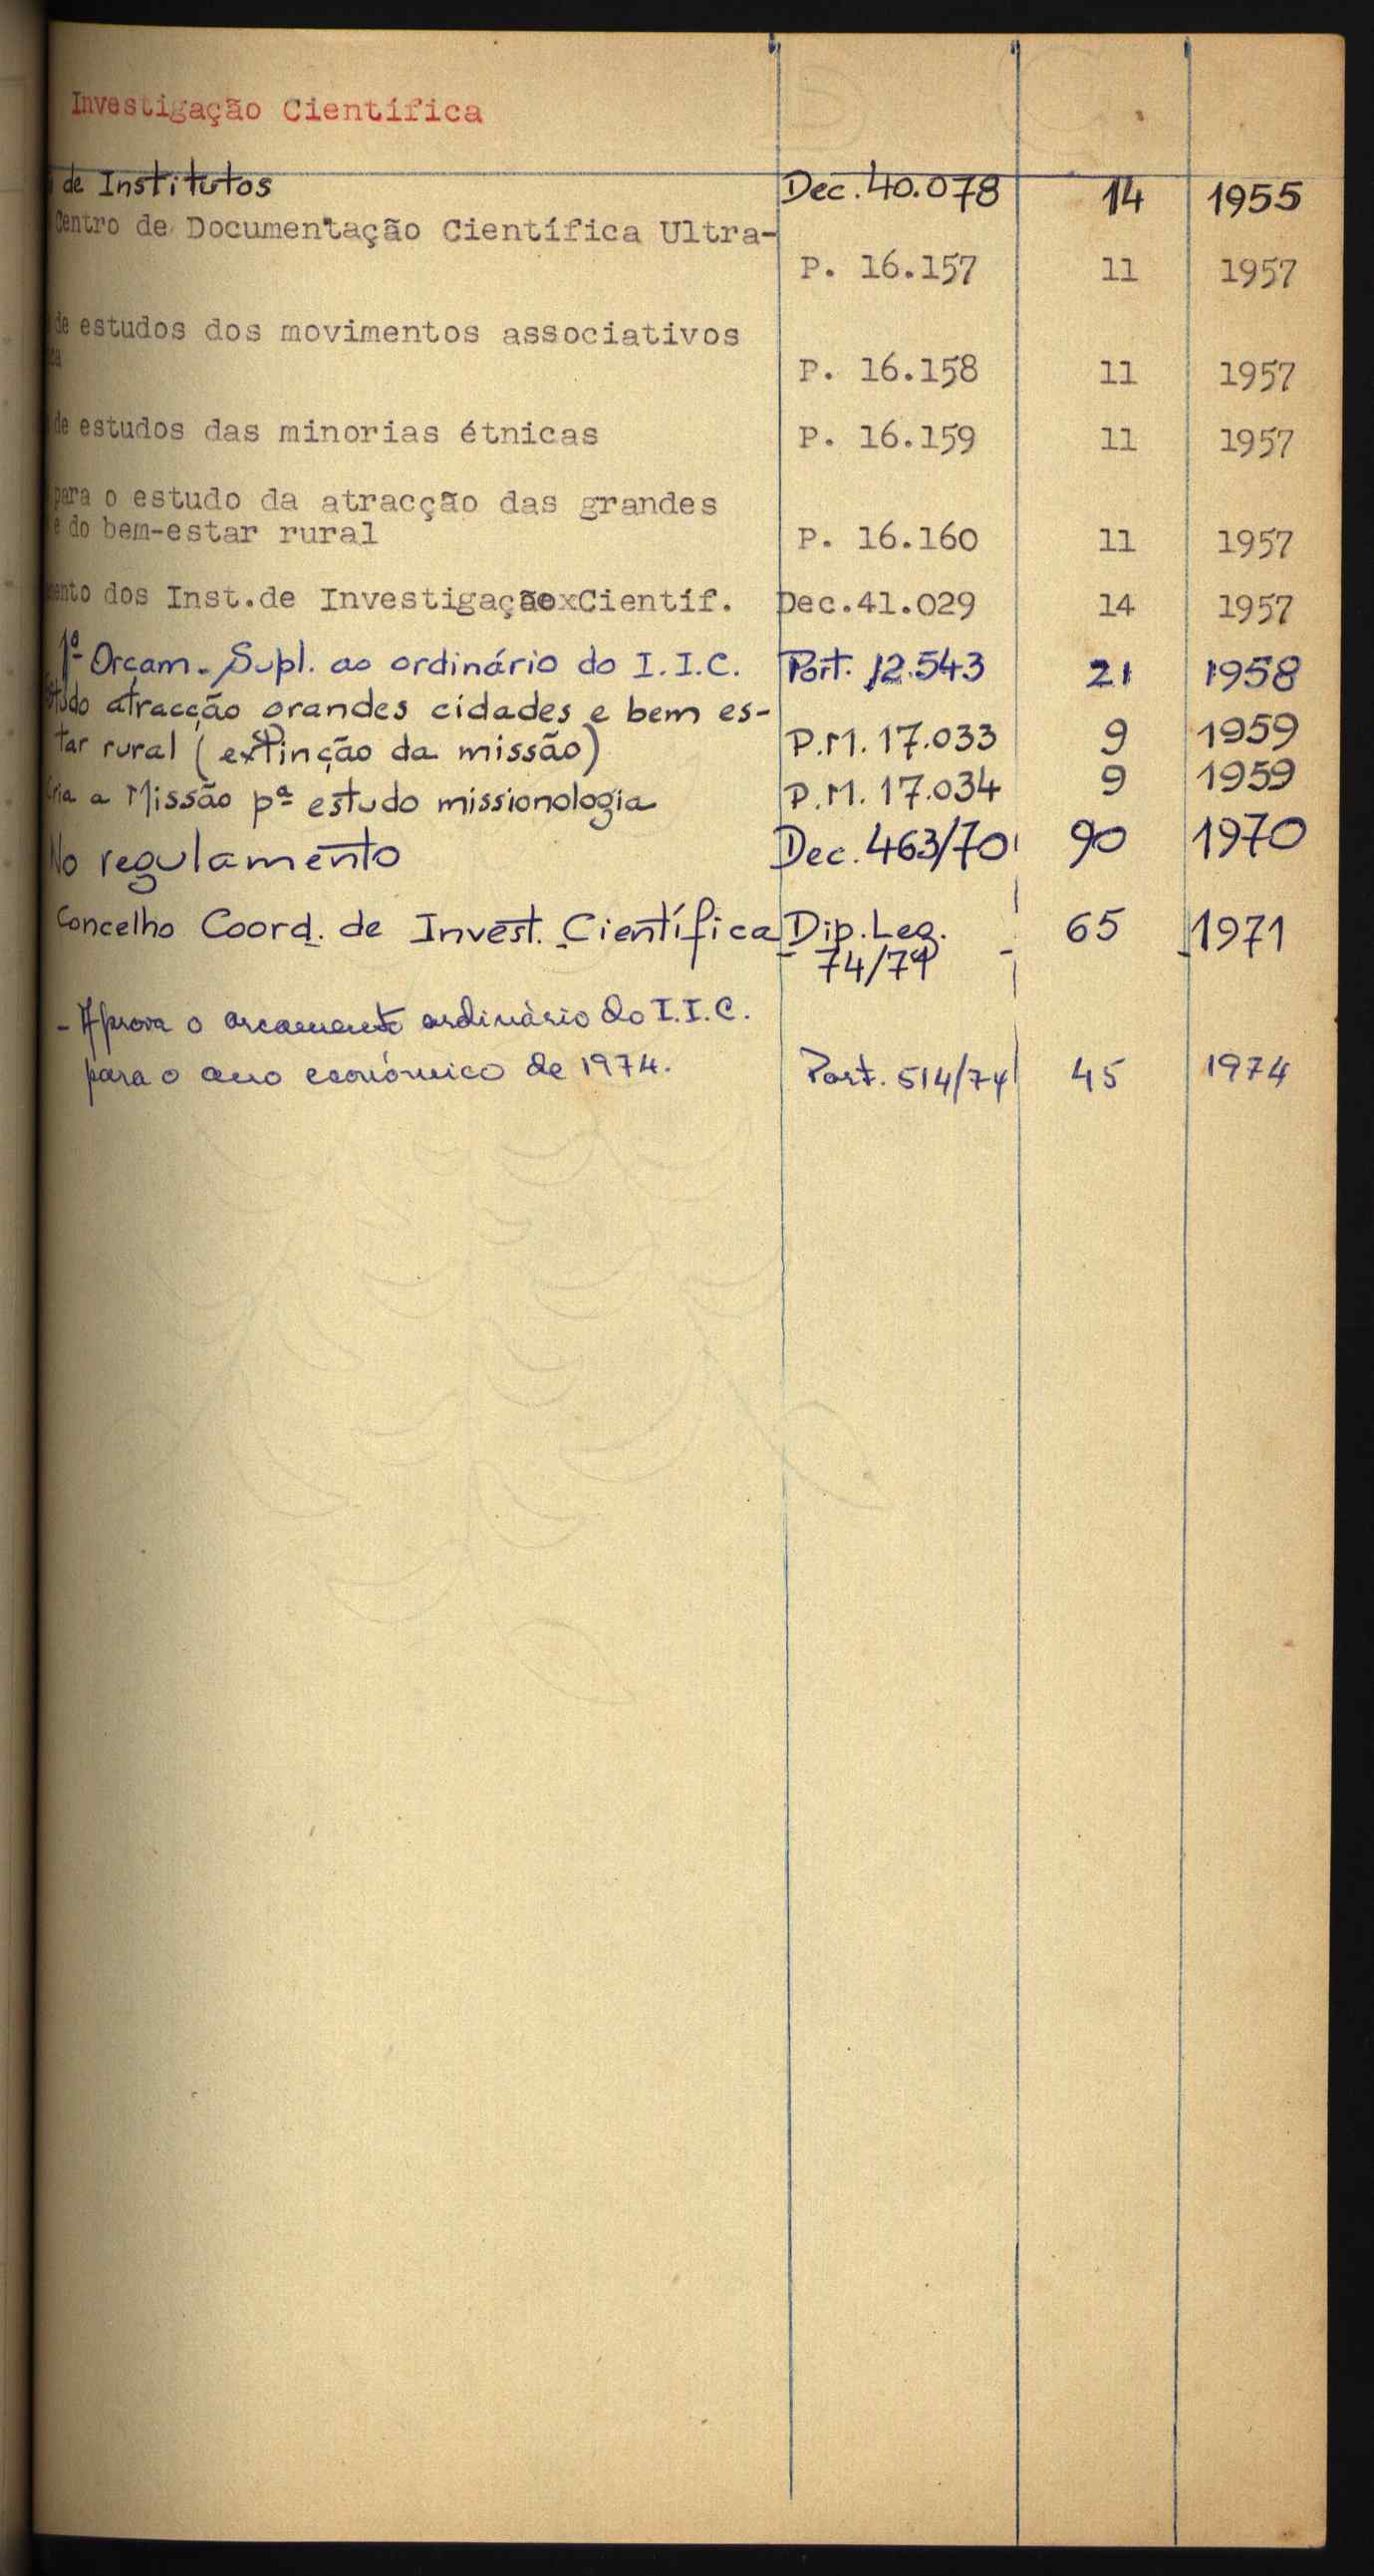 Investigação Científica
de Institutos Dec. 40.078 14 1955
Centro de Documentação Científica Ultra-
P. 16.157 11 1957
de estudos dos movimentos associativos
P. 16.158 11 1957
de estudos das minorias étnicas P. 16.159 11 1957
para o estudo da atracção das grandes
e do bem-estar rural P. 16.160 11 1957
dos Inst.de InvestigaçãoxCientíf. Dec.41.029 14 1957
1º Orçam. Supl. ao ordinário do I.I.C. Port. 12.543 21 1958
Estudo atracção grandes cidades e bem es-
tar rural (extinção da missão) P.M. 17.033 9 1959
Cria a Missão pª estudo missionologia P.M. 17.034 9 1959
No regulamento Dec. 463/70 90 1970
Concelho Coord. de Invest. Científica Dip. Leg. 65 1971
74/71
- Aprova o orçamento ordinário do I.I.C.
para o ano económico de 1974. Port. 514/74 45 1974